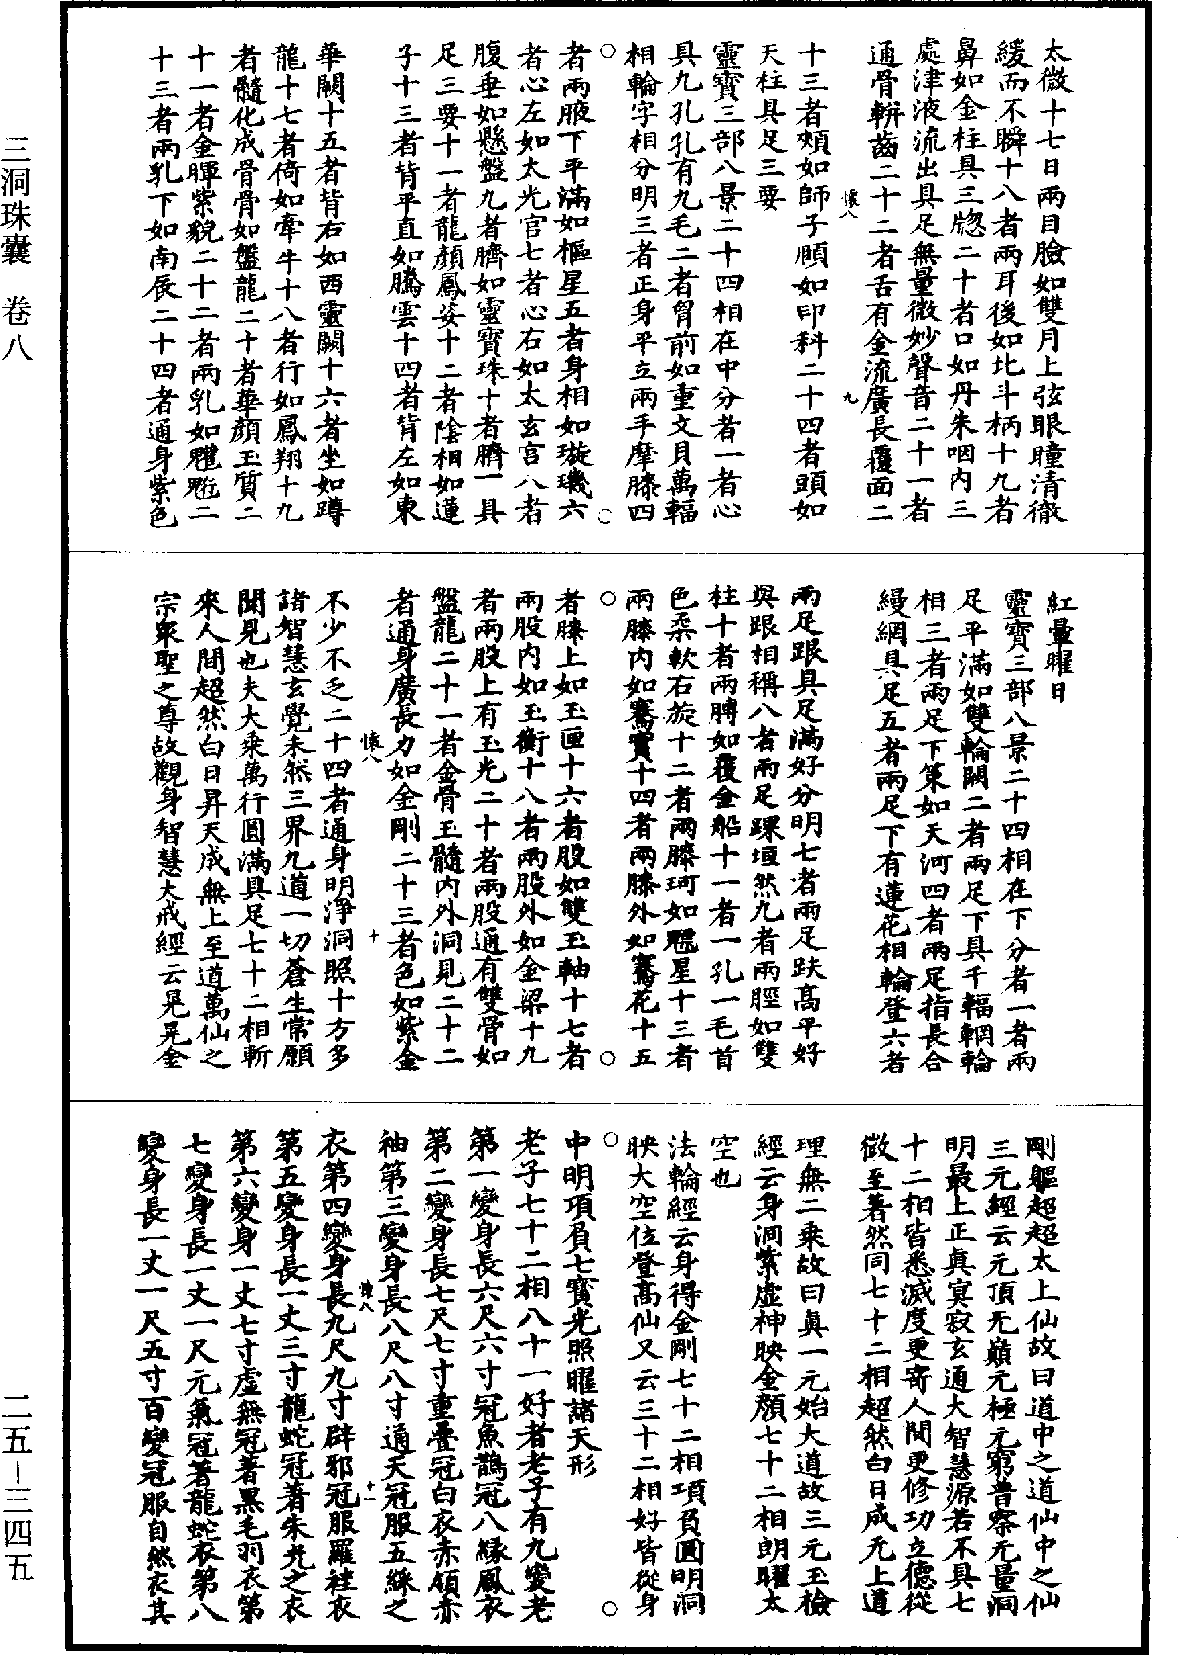 太微十七日兩目臉如雙月上弦眼瞳清徹
緩而不瞬十八者兩耳後如北斗柄十九者
鼻如金柱具三牎二十者口如丹朱咽内三
處津液流出具足無量微妙聲音二十一者
通骨骿齒二十二者舌有金流廣長覆面二
懷八 九
十三者頰如師子頤如印科二十四者頭如
天柱具足三要
靈寶三部八景二十四相在中分者一者心
具九孔孔有九毛二者胷前如重文貝萬輻
相輪字相分明三者正身平立兩手摩膝四
者兩腋下平滿如樞星五者身相如璇璣六
者心左如太光官七者心右如太玄宮八者
腹垂如懸盤九者臍如靈寶珠十者臍一具
足三要十一者龍顔鳳姿十二者陰相如蓮
子十三者背平直如騰雲十四者背左如東
華闕十五者背右如西靈闕十六者坐如蹲
龍十七者倚如牽牛十八者行如鳳翔十九
者髓化成骨骨如盤龍二十者華顔玉質二
十一者金暉紫貌二十二者兩乳如魓魒二
十三者兩乳下如南辰二十四者通身紫色
紅暈曜日
靈寶三部八景二十四相在下分者一者兩
足平滿如雙輪闕二者兩足下具千輻輞輪
相三者兩足下策如天河四者兩足指長合
縵網具足五者兩足下有蓮花相輪登六者
兩足跟具足滿好分明七者兩足趺高平好
與跟相稱八者兩足踝垣然九者兩脛如雙
柱十者兩膊如覆金船十一者一孔一毛首
色柔軟右旋十二者兩膝珂如魒星十三者
兩膝内如騫寳十四者兩膝外如騫花十五
者膝上如玉匣十六者股如雙玉軸十七者
兩股内如玉衡十八者兩股外如金梁十九
者兩股上有玉光二十者兩股通有雙骨如
盤龍二十一者金骨玉髓内外洞見二十二
者通身廣長力如金剛二十三者色如紫金
懷八 十
不少不乏二十四者通身明淨洞照十方多
諸智慧玄覺未然三界九道一切蒼生常願
聞見也夫大乘萬行圓滿具足七十二相斬
來人間超然白日昇天成無上至道萬仙之
宗衆聖之尊故觀身智慧大戒經云晃晃金
剛軀超超太上仙故曰道中之道仙中之仙
三元經云元頂无巔元極元窮普察无量洞
明最上正眞寘寂玄通大智慧源若不具七
十二相皆悉滅度更寄人間更修功立德從
微至著然同七十二相超然白日成无上道
理無二乘故曰眞一元始大道故三元玉檢
經云身洞紫虛神映金顔七十二相朗曜太
空也
法輪經云身得金剛七十二相項負圓明洞
映大空位登髙仙又云三十二相好皆從身
中明項負七寶光照曜諸天形
老子七十二相八十一好者老子有九變老
第一變身長六尺六寸冠魚鵲冠八緣鳳衣
第二變身長七尺七寸重疊冠白衣赤領赤
袖第三變身長八尺八寸通天冠服五綵之
懷八 十一
衣第四變身長九尺九寸辟邪冠服羅袿衣
第五變身長一丈三寸龍蛇冠著朱光之衣
第六變身一丈七寸虛無冠著黑毛羽衣第
七變身長一丈一尺元氣冠著龍蛇衣第八
變身長一丈一尺五寸百變冠服自然衣其
三洞珠囊 卷八
二五—三四五